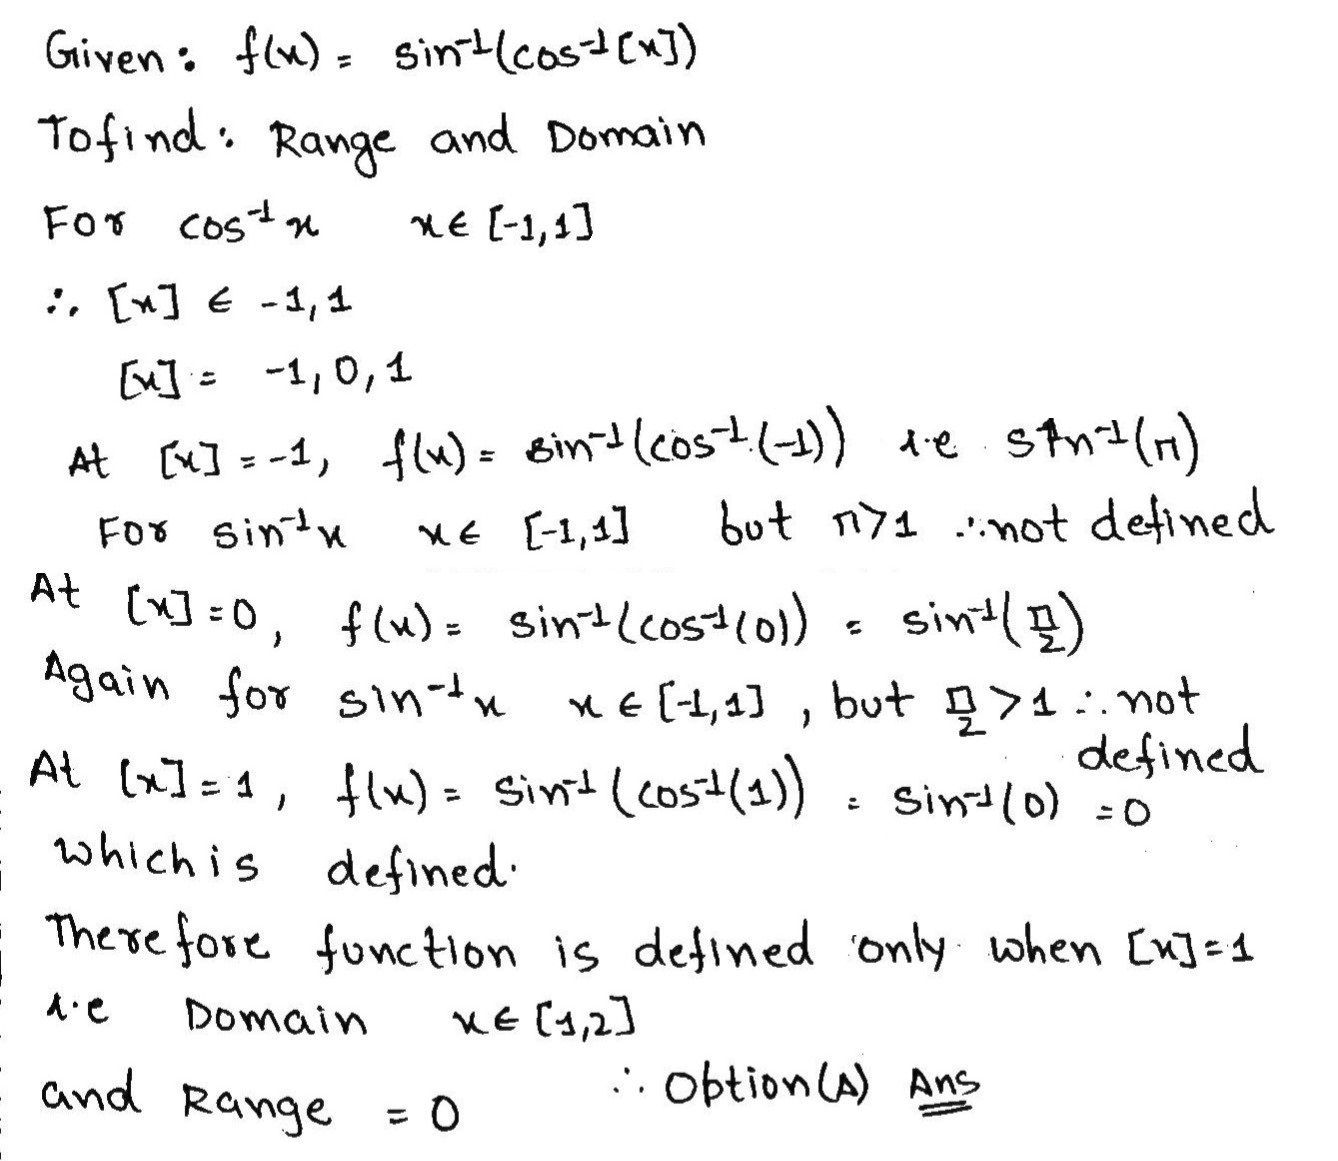 Given: f(x) = sin⁻¹(cos⁻¹[x])
To find: Range and Domain
For cos⁻¹x x∈ [-1,1]
∴ [x] ∈ -1,1
[x] = -1,0,1
At [x] = -1, f(x) = sin⁻¹(cos⁻¹(-1)) i.e sin⁻¹(π)
For sin⁻¹x x∈ [-1,1] but π>1 ∴ not defined
At [x]=0, f(x) = sin⁻¹(cos⁻¹(0)) = sin⁻¹(π/2)
Again for sin⁻¹x x∈[-1,1], but π/2 >1 ∴ not
defined
At [x]=1, f(x) = sin⁻¹(cos⁻¹(1)) = sin⁻¹(0) =0
which is defined.
Therefore function is defined only when [x]=1
i.e Domain x∈[1,2]
and Range = 0 ∴ Obtion(A) Ans